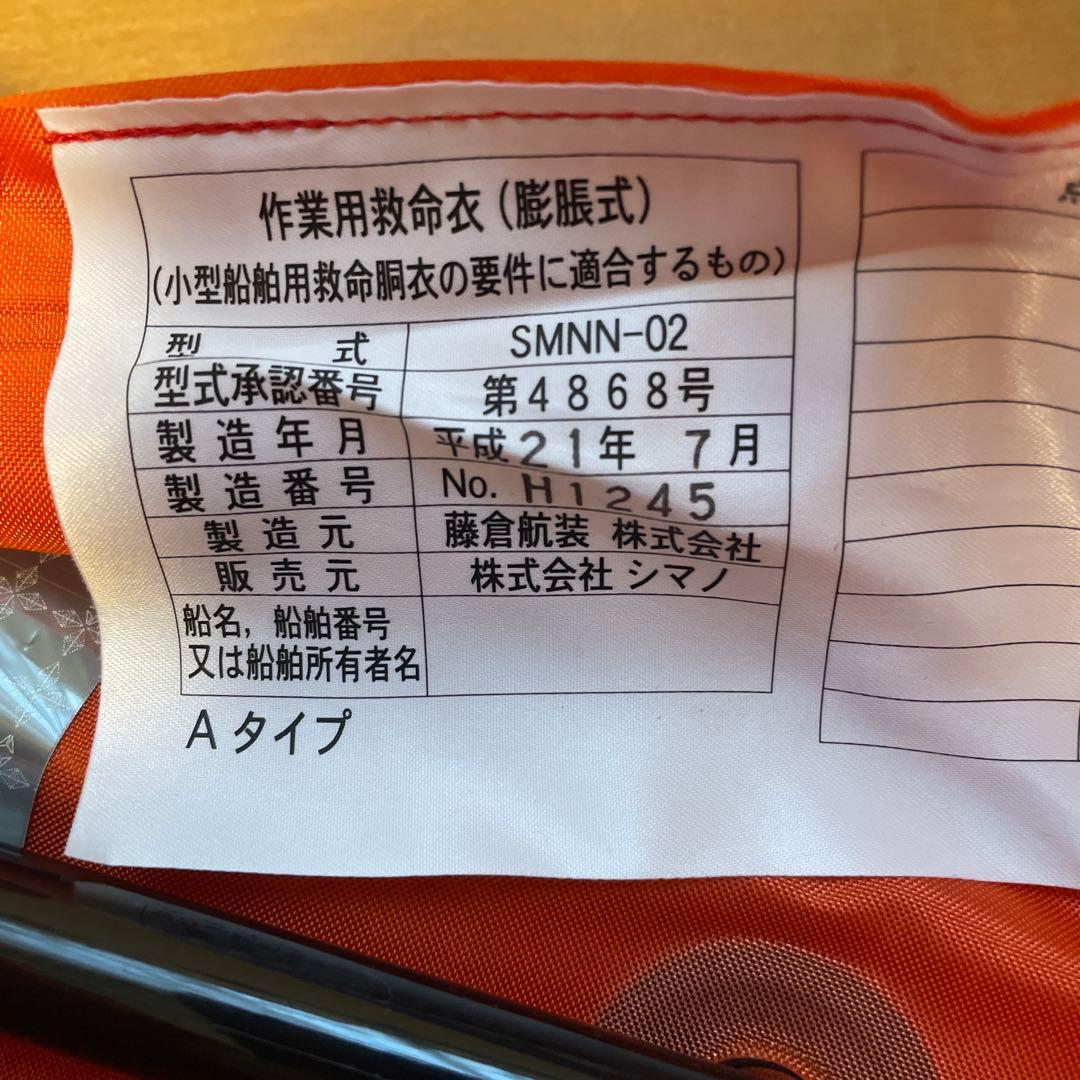 作業用救命衣(膨脹式)
(小型船舶用救命胴衣の要件に適合するもの)
型 式 SMNN-02
型式承認番号 第4868号
製造年月 平成21年 7月
製造番号 No. H1245
製造元 藤倉航装 株式会社
販売元 株式会社 シマノ
船名, 船舶番号
又は船舶所有者名
Aタイプ